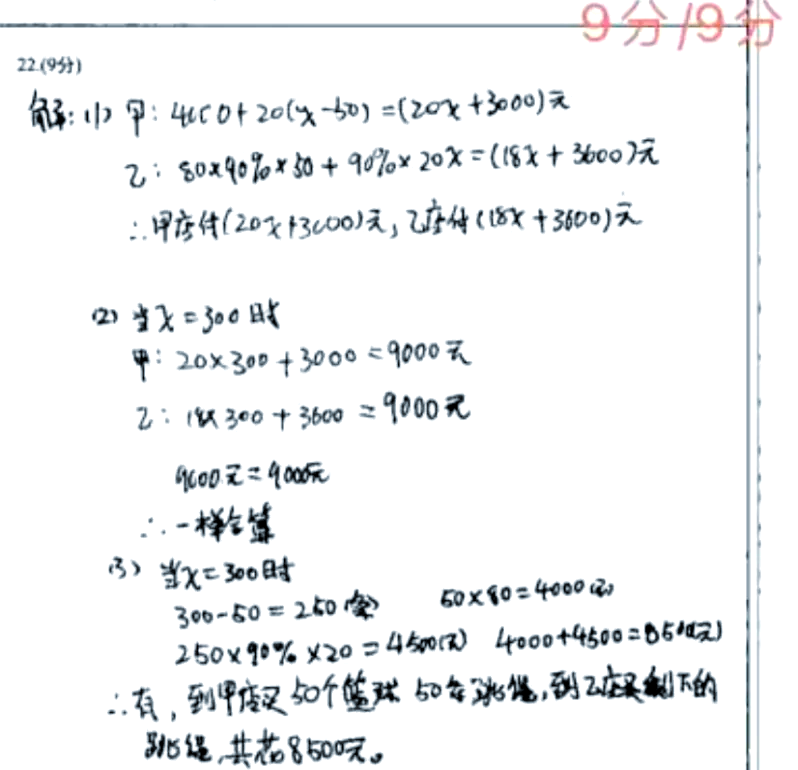 9分/9分
22.(9分)
解:(1) 甲: 4000+20(x-50)=(20x+3000)元
乙: 80×90%×50+90%×20x=(18x+3600)元
∴甲店付(20x+3000)元,乙店付(18x+3600)元
(2) 当x=300时
甲: 20×300+3000=9000元
乙: 18×300+3600=9000元
9000元=9000元
∴一样合算
(3) 当x=300时
300-50=250(条) 50×80=4000(元)
250×90%×20=4500(元) 4000+4500=8500(元)
∴有,到甲店买50个篮球 50条跳绳,到乙店买剩下的
跳绳,共花8500元。